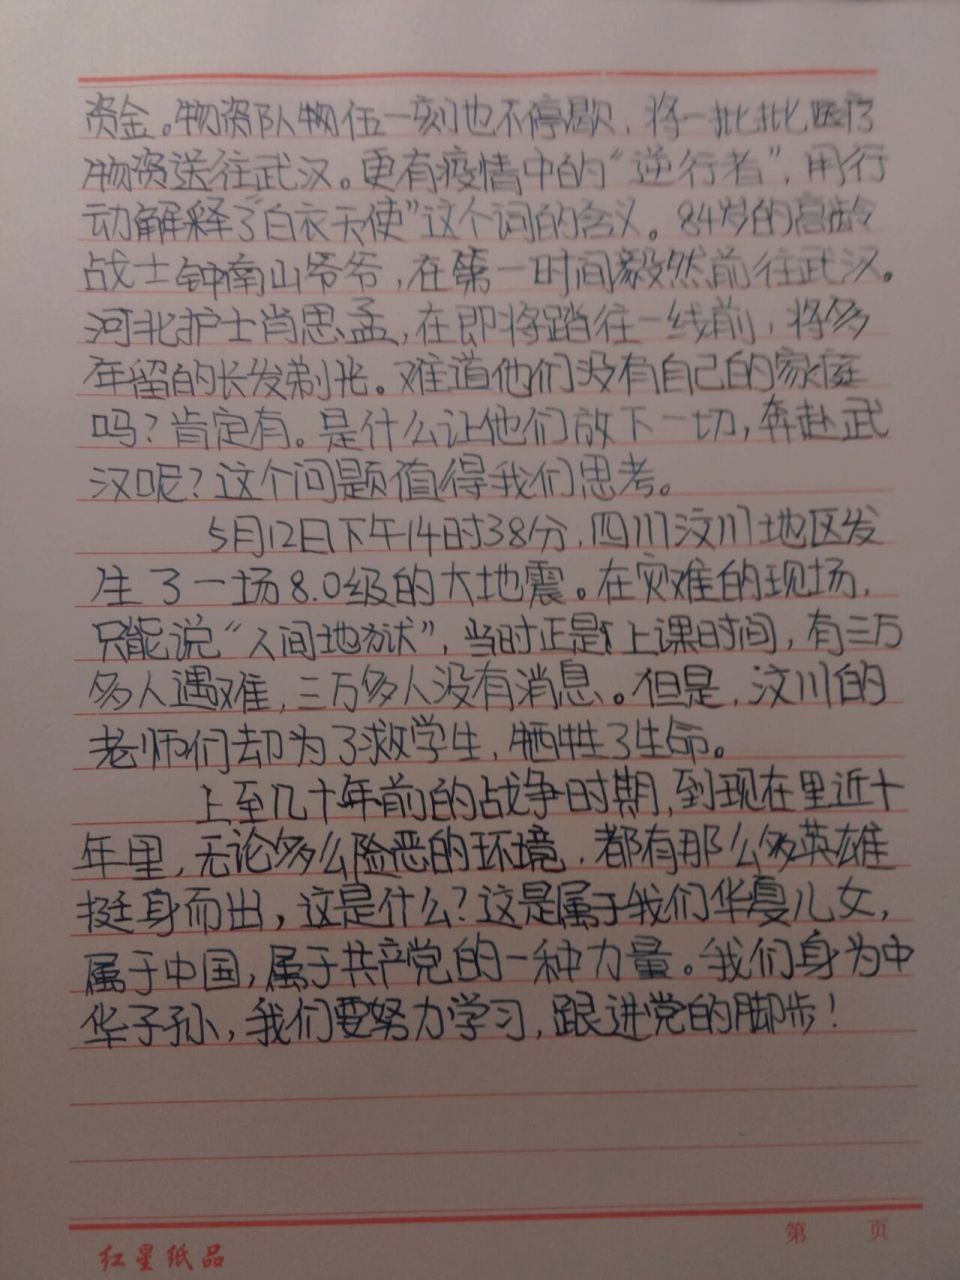 资金。物资队物伍一刻也不停歇，将一批批医疗
物资送往武汉。更有疫情中的“逆行者”，用行
动解释了“白衣天使”这个词的含义。84岁的高龄
战士钟南山爷爷，在第一时间毅然前往武汉。
河北护士肖思孟，在即将踏往一线前，将多
年留的长发剃光。难道他们没有自己的家庭
吗？肯定有。是什么让他们放下一切，奔赴武
汉呢？这个问题值得我们思考。
5月12日下午14时38分，四川汶川地区发
生了一场8.0级的大地震。在灾难的现场，
只能说“人间地狱”，当时正是上课时间，有三万
多人遇难，三万多人没有消息。但是，汶川的
老师们却为了救学生，牺牲了生命。
上至几十年前的战争时期，到现在里近十
年里，无论多么险恶的环境，都有那么多英雄
挺身而出，这是什么？这是属于我们华夏儿女，
属于中国，属于共产党的一种力量。我们身为中
华子孙，我们要努力学习，跟进党的脚步！
第 页
红星纸品